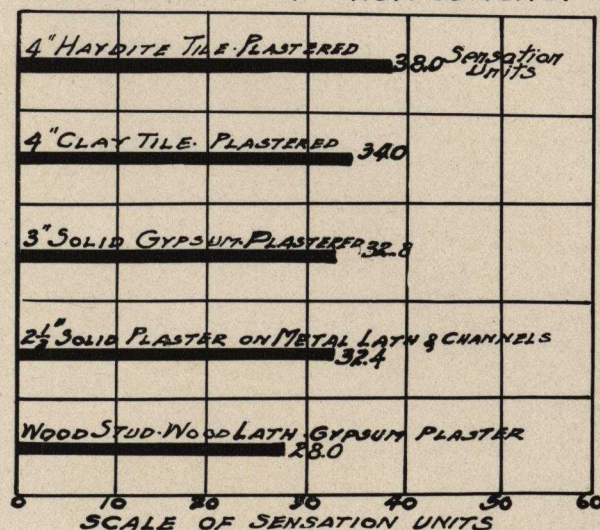 4" HAYDITE TILE·PLASTERED
38.0 Sensation
Units
4" CLAY TILE· PLASTERED
34.0
3" SOLID GYPSUM·PLASTERED
32.8
2½" SOLID PLASTER ON METAL LATH & CHANNELS
32.4
WOOD STUD·WOOD LATH·GYPSUM PLASTER
28.0
0 10 20 30 40 50 60
SCALE OF SENSATION UNITS